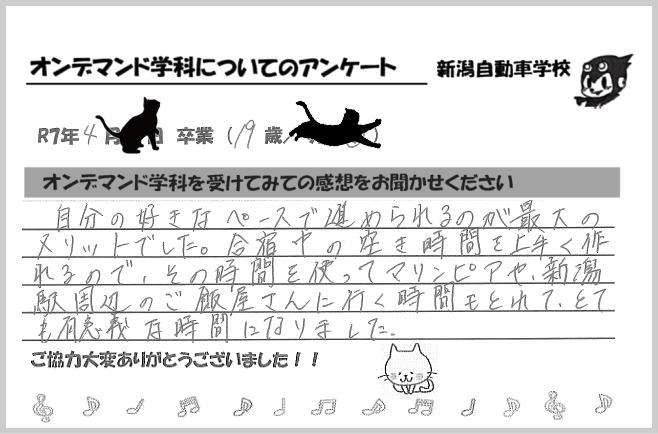 オンデマンド学科についてのアンケート 新潟自動車学校
R7年4月 日 卒業（19歳
オンデマンド学科を受けてみての感想をお聞かせください
自分の好きなペースで進められるのが最大の
メリットでした。合宿中の空き時間を上手く作
れるので、その時間を使ってマリンピアや、新潟
駅周辺のご飯屋さんに行く時間もとれて、とて
も有意義な時間になりました。
ご協力大変ありがとうございました！！